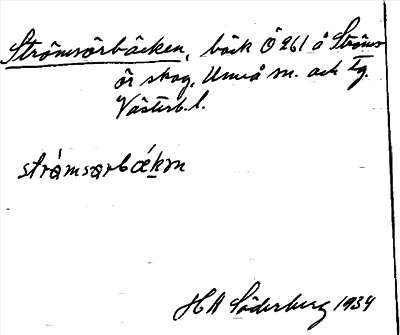 Strömsörbäcken, bäck Ö 261 å Ströms
ör skog, Umeå sn. och tg.
Västerb. l.
strǿmsørbǽkɪn
H A Söderberg 1934